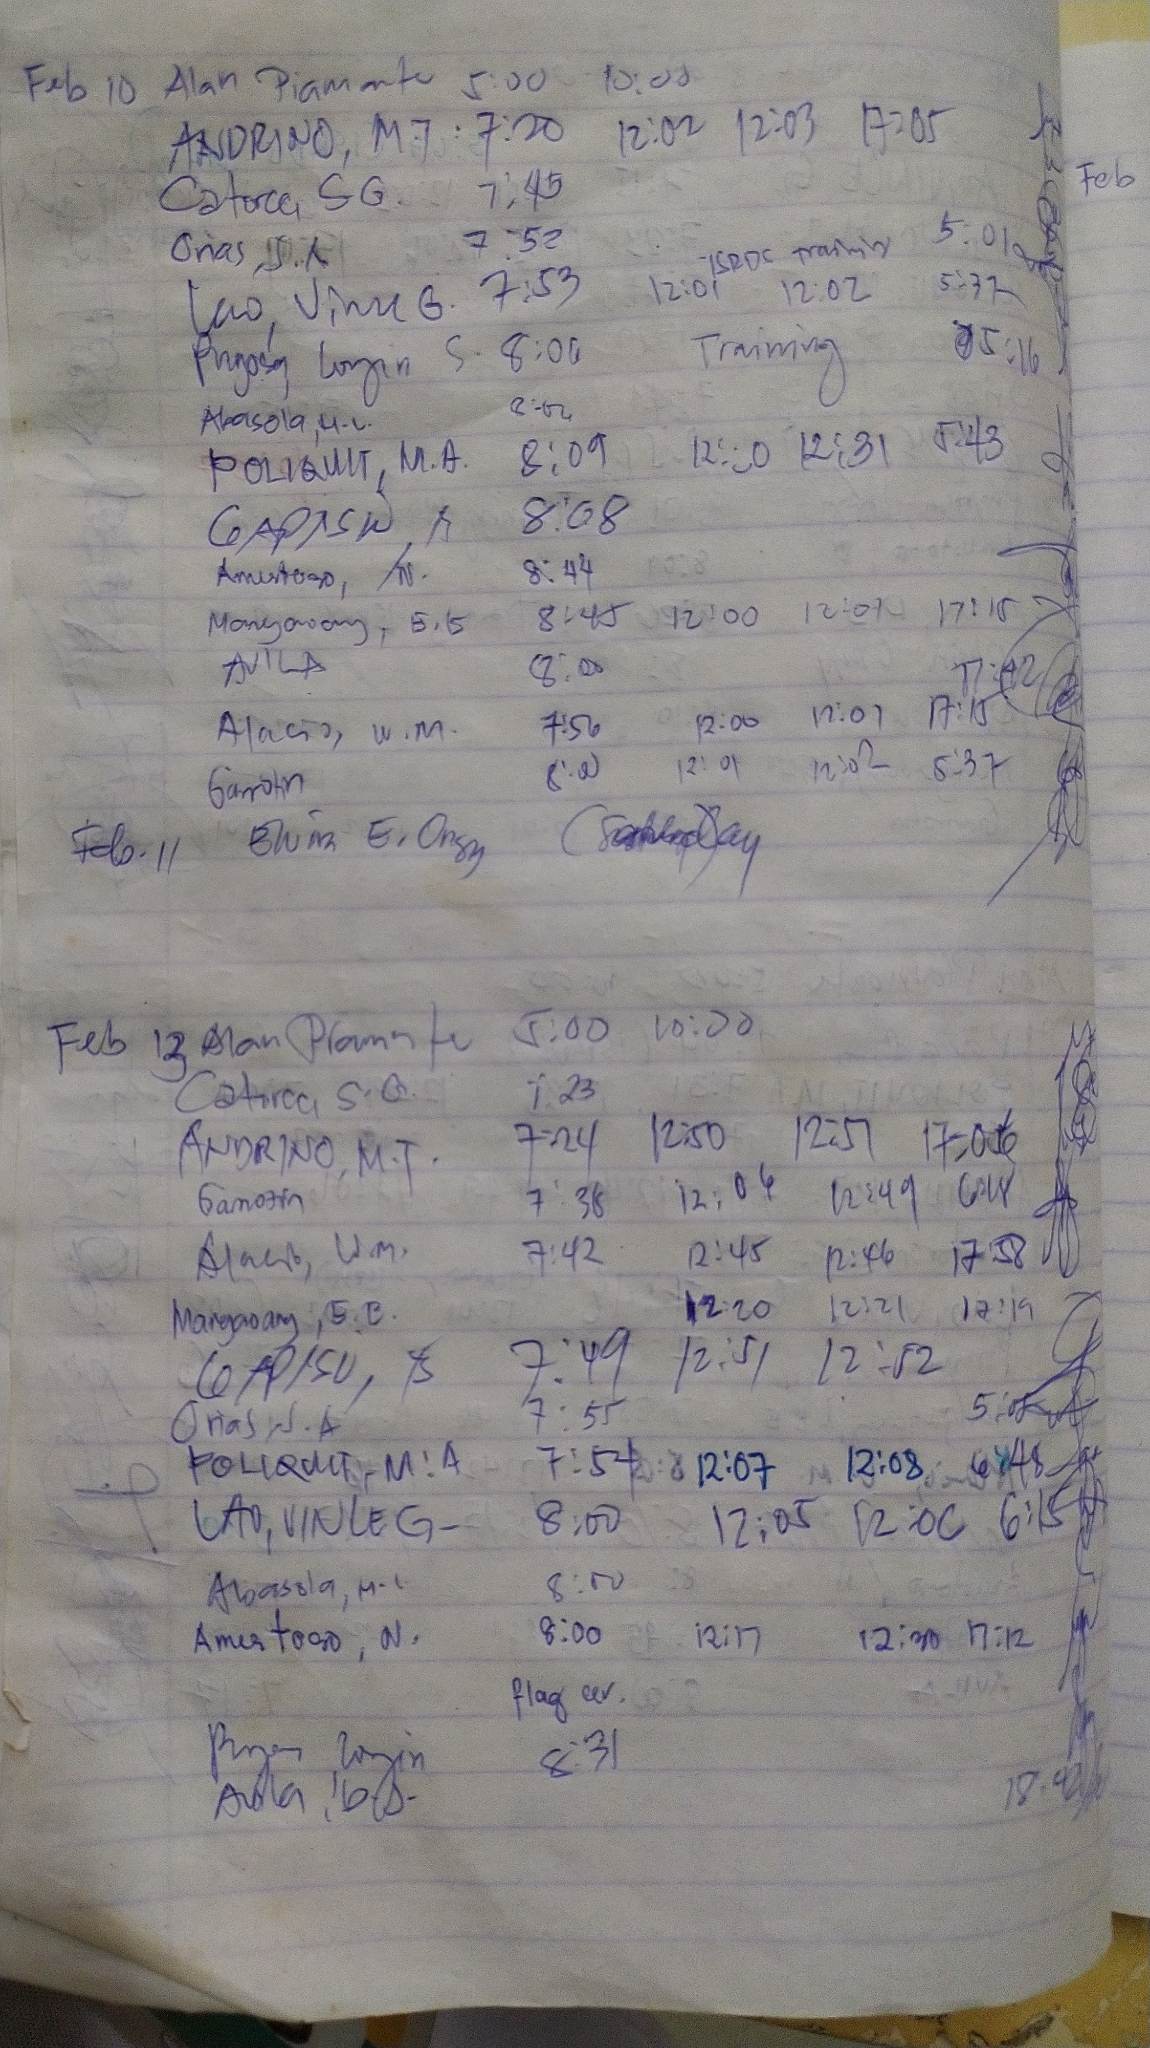 Feb 10 Alan Piamonte 5:00 10:00
ANDRINO, M.T. 7:20 12:02 12:03 17:05
Feb
Catorce, S G. 7:45
Orias, J.A 7:52 ISRDS Training 5:01
Lao, Vince G. 7:53 12:01 12:02 5:37
Login S. 8:00 Training 05:16
Abasola, M.L. 8:02
POLIQUIT, M.A. 8:09 12:31 5:43
GAPISU, 8:08
Amestoso, N. 8:44
Mangaoang, E.B 8:45 12:00 12:01 17:15
AVILA 8:00 17:42
Alacio, W.M. 7:56 12:00 12:01 17:15
Gamotin 8:00 12:01 12:02 5:37
Feb. 11 Elvira E.
Feb 13 Alan Piamonte 5:00 10:00
Catorce, S.G. 7:23
ANDRINO, M.T. 7:24 12:50 12:51 17:06
Gamotin 7:38 12:04 12:49 6:18
Alacio, W.M. 7:42 12:45 12:46 17:58
Mangaoang, E.B. 12:20 12:21 17:19
GAPISU, 7:49 12:51 12:52
Orias, J.A 7:55
POLIQUIT, M.A 7:54 12:07 12:08 6:48
LAO, VINCE G- 8:00 12:05 12:06 6:15
Abasola, M.L 8:00
Amestoso, N. 8:00 12:17 17:12
flag cer.
Login 8:31
Avila,